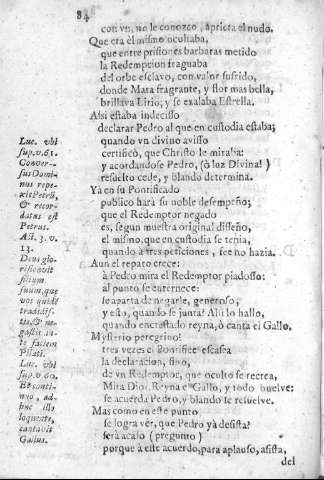 84
con vn, no le conozco, apricta el nudo.
Que era èl mismo ocultaba,
que entre prisiones barbaras metido
la Redempcion fraguaba
del orbe esclavo, con valor sufrido,
donde Mata fragrante, y flor mas bella,
brillava Lirio, y se exalaba Estrella.
Assi estaba indecisso
declarar Pedro al que en custodia estaba;
quando vn divino avisso
certificò, que Christo le miraba:
y acordandose Pedro, (ò luz Divina!)
resuelto cede, y blando determina.
Yà en su Pontificado
publico harà su noble desempeño;
que el Redemptor negado
es, segun muestra original disseño,
el mismo, que en custodia se tenia,
quando à tres peticiones, fee no hazia.
Aun el reparo crece:
à Pedro mira el Redemptor piadoso:
al punto se enternece:
se aparta de negarle, generoso,
y esto, quando se junta? Allì lo hallo,
quando encrestado reyna, ò canta el Gallo.
Mysterio peregrino!
tres vezes el Pontifice escasea
la declaracion, sino,
de vn Redemptor, que oculto se recrea,
Mira Dios, Reyna el Gallo, y todo buelve:
se acuerda Pedro, y blando se resuelve.
Mas como en este punto
se logra vèr, que Pedro yà desista?
serà acaso (pregunto)
porque à este acuerdo, para aplauso, asista,
del
Luc. vbi
sup. v. 61.
Conver-
sus Domi-
nus respe-
xit Petrũ,
& recor-
datus est
Petrus.
Act. 3. v.
13.
Deus glo-
rificavit
filium
suum, quẽ
vos quidẽ
tradidis-
tis, & ne-
gastis an-
te faciem
Pilati.
Luc. vbi
sup. v. 60.
Et conti-
nuo, ad-
huc illo
loquente,
cantavit
Gallus.